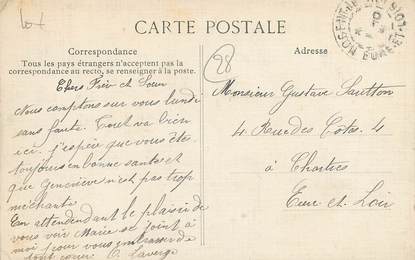 CARTE POSTALE
Correspondance
Tous les pays étrangers n'acceptent pas la
correspondance au recto, se renseigner à la poste.
Chers Frère et Sœur
Nous comptons sur vous lundi
sans faute. Tout va bien
ici. j'espère que vous êtes
toujours en bonne santés et
que Geneviève n'est pas trop
méchante.
En attendendant le plaisir de
vous voir Marie se joint à
moi pour vous embrasser de
tout cœur
Adresse
28
Monsieur Gustave
4 Rue des 4
à Chartres
Eure et Loir
EURE-ET-LOIR